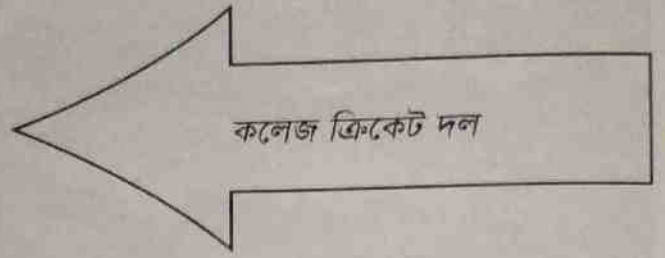 কলেজ ক্রিকেট দল